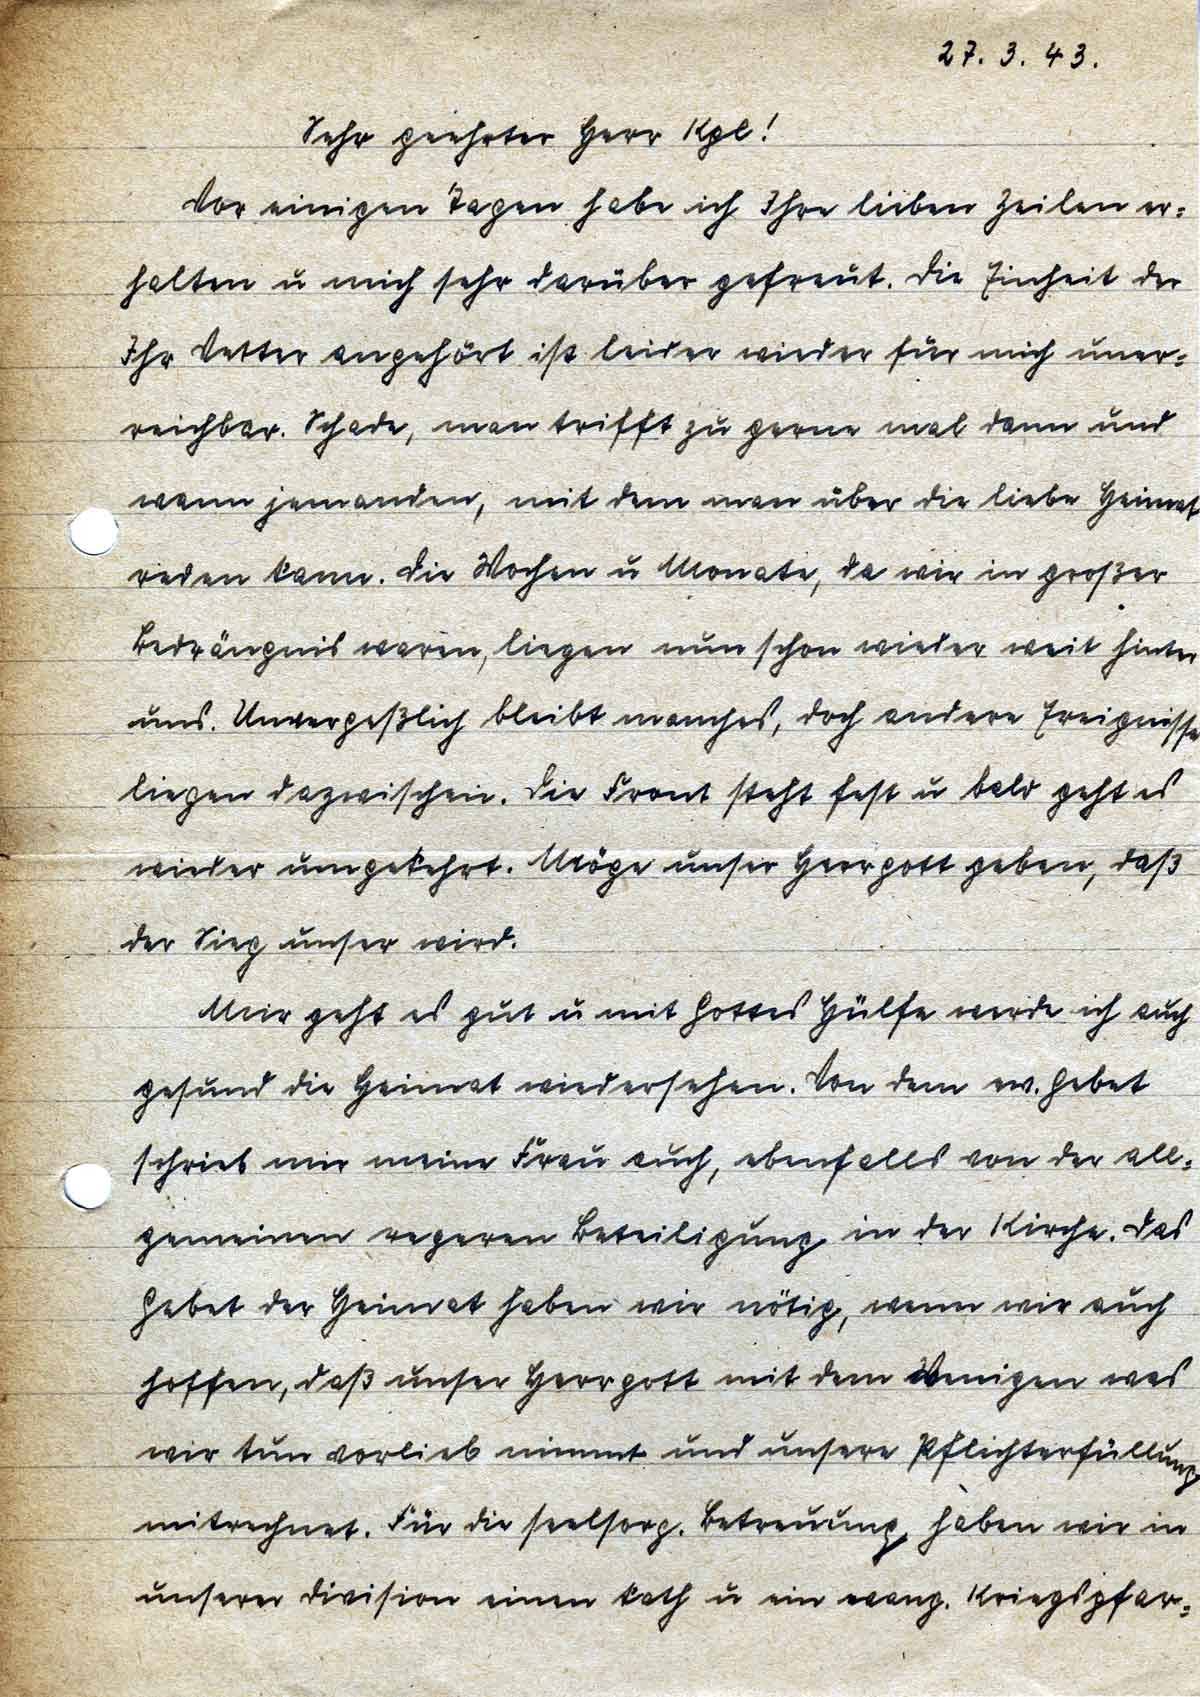 27. 3. 43.
Sehr geehrter Herr Kpl!
Vor einigen Tagen habe ich Ihre lieben Zeilen er=
halten u mich sehr darüber gefreut. Die Einheit der
Ihr Vetter angehört ist leider wieder für mich uner=
reichbar. Schade, man trifft zu gerne mal dann und
wann jemanden, mit dem man über die liebe Heimat
reden kann. Die Wochen u Monate, da wir in großer
Bedrängnis waren, liegen nun schon wieder weit hinter
uns. Unvergeßlich bleibt manches, doch andere Ereignisse
liegen dazwischen. Die Front steht fest u bald geht es
wieder umgekehrt. Möge unser Herrgott geben, daß
der Sieg unser wird.
Mir geht es gut u mit Gottes Hülfe werde ich auch
gesund die Heimat wiedersehen. Von dem ew. Gebet
schrieb mir meine Frau auch, ebenfalls von der all=
gemeinen regeren Beteiligung in der Kirche. Das
Gebet der Heimat haben wir nötig, wenn wir auch
hoffen, daß unser Herrgott mit dem Wenigen was
wir tun vorlieb nimmt und unsere Pflichterfüllung
mitrechnet. Für die seelsorg. Betreuung haben wir in
unserer Division einen kath u ein evang. Kriegspfar=